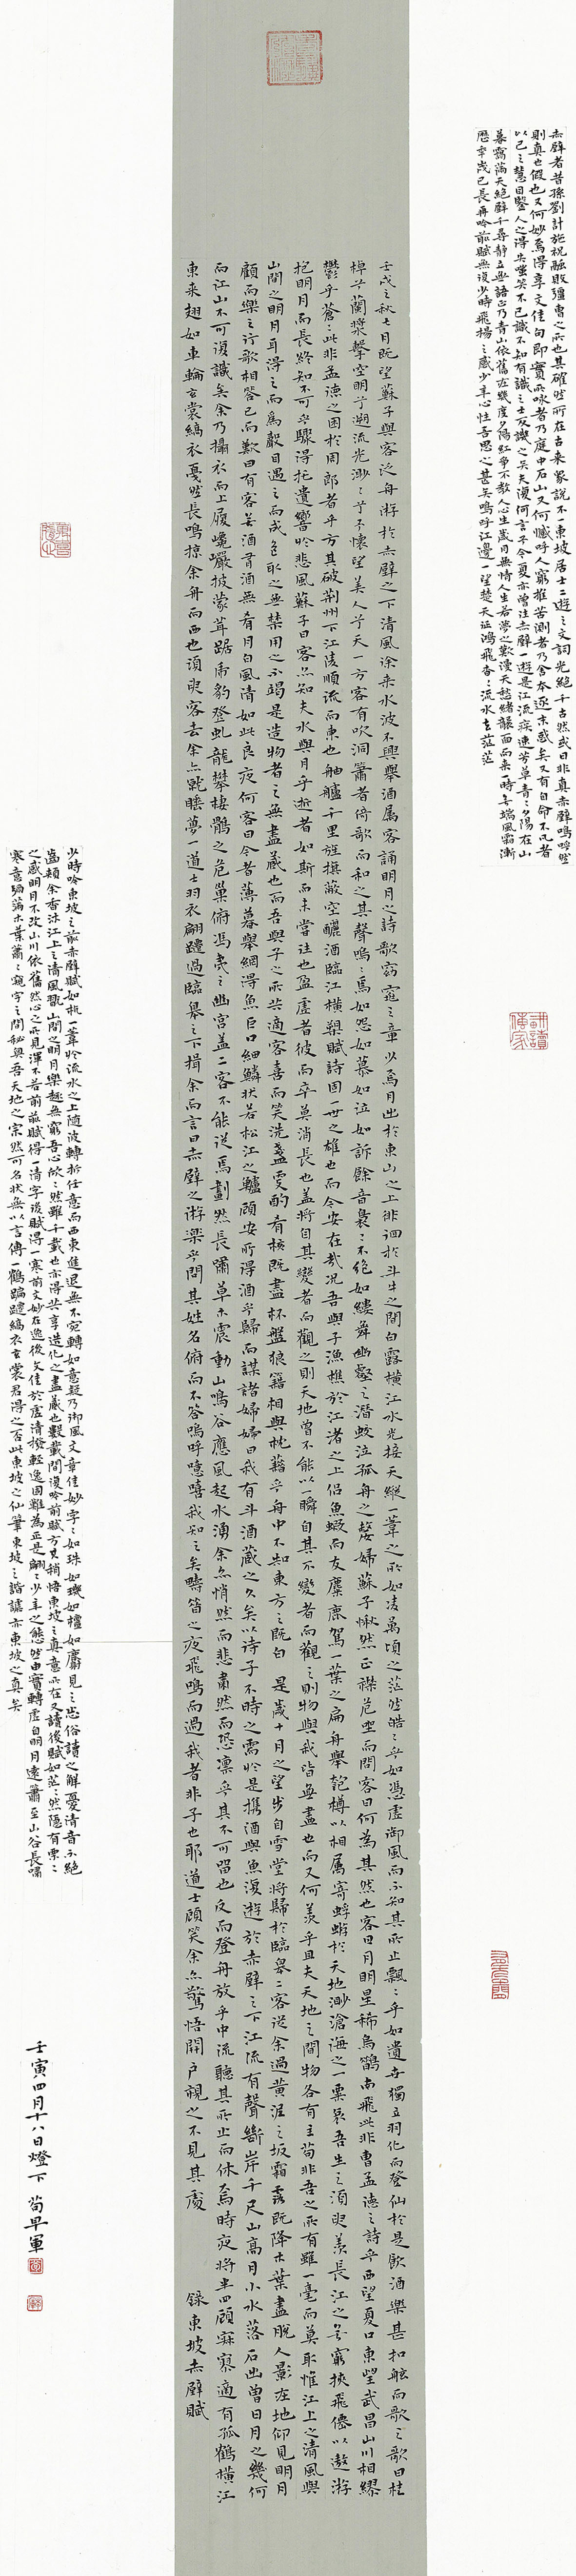 赤壁者昔孫劉計施祝融敗彊曹之所也其確然所在古來眾說不一東坡居士二遊之文詞光絕千古然或曰非真赤壁嗚呼然
則真也假也又何妙焉得享文佳句即實所咏者乃庭中石山又何憾呼人窮推苦測者乃舍本逐末惑矣又有自命不凡者
以己之慧目鑒人之得失嗤笑不已識不知有識之士反譏之矣夫復何言乎今夏亦曾注赤壁一遊是江流疾速芳草青々夕陽在山
暮靄滿天絕壁千尋靜立無語正乃青山依舊在幾度夕陽紅爭不教人心生歲月無情人生若夢之歎漫天愁緒襲面而來一時無端風霜漸
歷年歲已長再吟前賦無復少時飛揚之感少年心性吾思之甚矣嗚呼江邊一望楚天延鴻飛杳々流水去茫茫
壬戌之秋七月既望蘇子與客泛舟游於赤壁之下清風徐來水波不興舉酒属客誦明月之詩歌窈窕之章少焉月出於東山之上徘徊於斗牛之間白露橫江水光接天縱一葦之所如凌萬頃之茫然皓々乎如馮虛御風而不知其所止飄々乎如遺世獨立羽化而登仙於是飲酒樂甚扣舷而歌之歌曰桂
棹兮蘭槳擊空明兮溯流光渺々兮予懷望美人兮天一方客有吹洞簫者倚歌而和之其聲嗚々焉如怨如慕如泣如訴餘音裊々不絕如縷舞幽壑之潛蛟泣孤舟之嫠婦蘇子愀然正襟危坐而問客曰何為其然也客曰月明星稀烏鵲南飛此非曹孟德之詩乎西望夏口東望武昌山川相繆
鬱乎蒼々此非孟德之困於周郎者乎方其破荆州下江陵順流而東也舳艫千里旌旗蔽空釃酒臨江橫槊賦詩固一世之雄也而今安在哉況吾與子漁樵於江渚之上侶魚蝦而友麋鹿駕一葉之扁舟舉匏樽以相属寄蜉蝣於天地渺滄海之一粟哀吾生之須臾羨長江之無窮挾飛僊以遨游
抱明月而長終知不可乎驟得托遺響於悲風蘇子曰客亦知夫水與月乎逝者如斯而未嘗往也盈虛者如彼而卒莫消長也蓋將自其變者而觀之則天地曾不能以一瞬自其不變者而觀之則物與我皆無盡也而又何羨乎且夫天地之間物各有主苟非吾之所有雖一毫而莫取惟江上之清風與
山間之明月耳得之而為聲目遇之而成色取之無禁用之不竭是造物者之無盡藏也而吾與子之所共適客喜而笑洗盞更酌肴核既盡杯盤狼籍相與枕藉乎舟中不知東方之既白 是歲十月之望步自雪堂將歸於臨皋二客從余過黃泥之坂霜露既降木葉盡脫人影在地仰見明月
顧而樂之行歌相答已而歎曰有客無酒有酒無肴月白風清如此良夜何客曰今者薄暮舉網得魚巨口細鱗狀若松江之鱸顧安所得酒乎歸而謀諸婦婦曰我有斗酒藏之久矣以待子不時之需於是攜酒與魚復遊於赤壁之下江流有聲斷岸千尺山高月小水落石出曾日月之幾何
而江山不可復識矣余乃攝衣而上履巉巖披蒙茸踞虎豹登虬龍攀棲鶻之危巢俯馮夷之幽宮蓋二客不能從焉劃然長嘯草木震動山鳴谷應風起水湧余亦悄然而悲肅然而恐凜乎其不可留也反而登舟放乎中流聽其所止而休焉時夜將半四顧寂寥適有孤鶴橫江
東來翅如車輪玄裳縞衣戛然長鳴掠余舟而西也須臾客去余亦就睡夢一道士羽衣翩躚過臨皋之下揖余而言曰赤壁之游樂乎問其姓名俯而不答嗚呼噫嘻我知之矣疇昔之夜飛鳴而過我者非子也耶道士顧笑余亦驚悟開户視之不見其處 錄東坡赤壁賦
少時吟東坡之前赤壁賦如杭一葦於流水之上隨波轉折任意而西東進退無不宛轉如意疑乃御風文章佳妙字々如珠如璣如檀如麝見之忘俗讀之解憂清音不絕
齒頰余香沐江上之清風翫山間之明月樂趣無窮吾心欣々然雖千載也亦得共享造化之盡藏也數載間復吟前賦方見稍悟東坡之真意所在又讀後賦如茫々然隱有栗々
之感明月不改山川依舊然心之所見渾不若前前賦得一清字後賦得一寒前文妙在逸後文佳於虛清撥輕逸固難為正是翩々少年之態然由實轉虛自明月遠簫至山谷長嘯
寒意獨滿木葉蕭々窺字之間秘與吾天地之宗然可名狀無以言傳一鶴蹁躚縞衣玄裳君得之否此東坡之仙筆東坡之諧謔亦東坡之真矣
壬寅四月十八日燈下 荀早軍
耕讀傳家